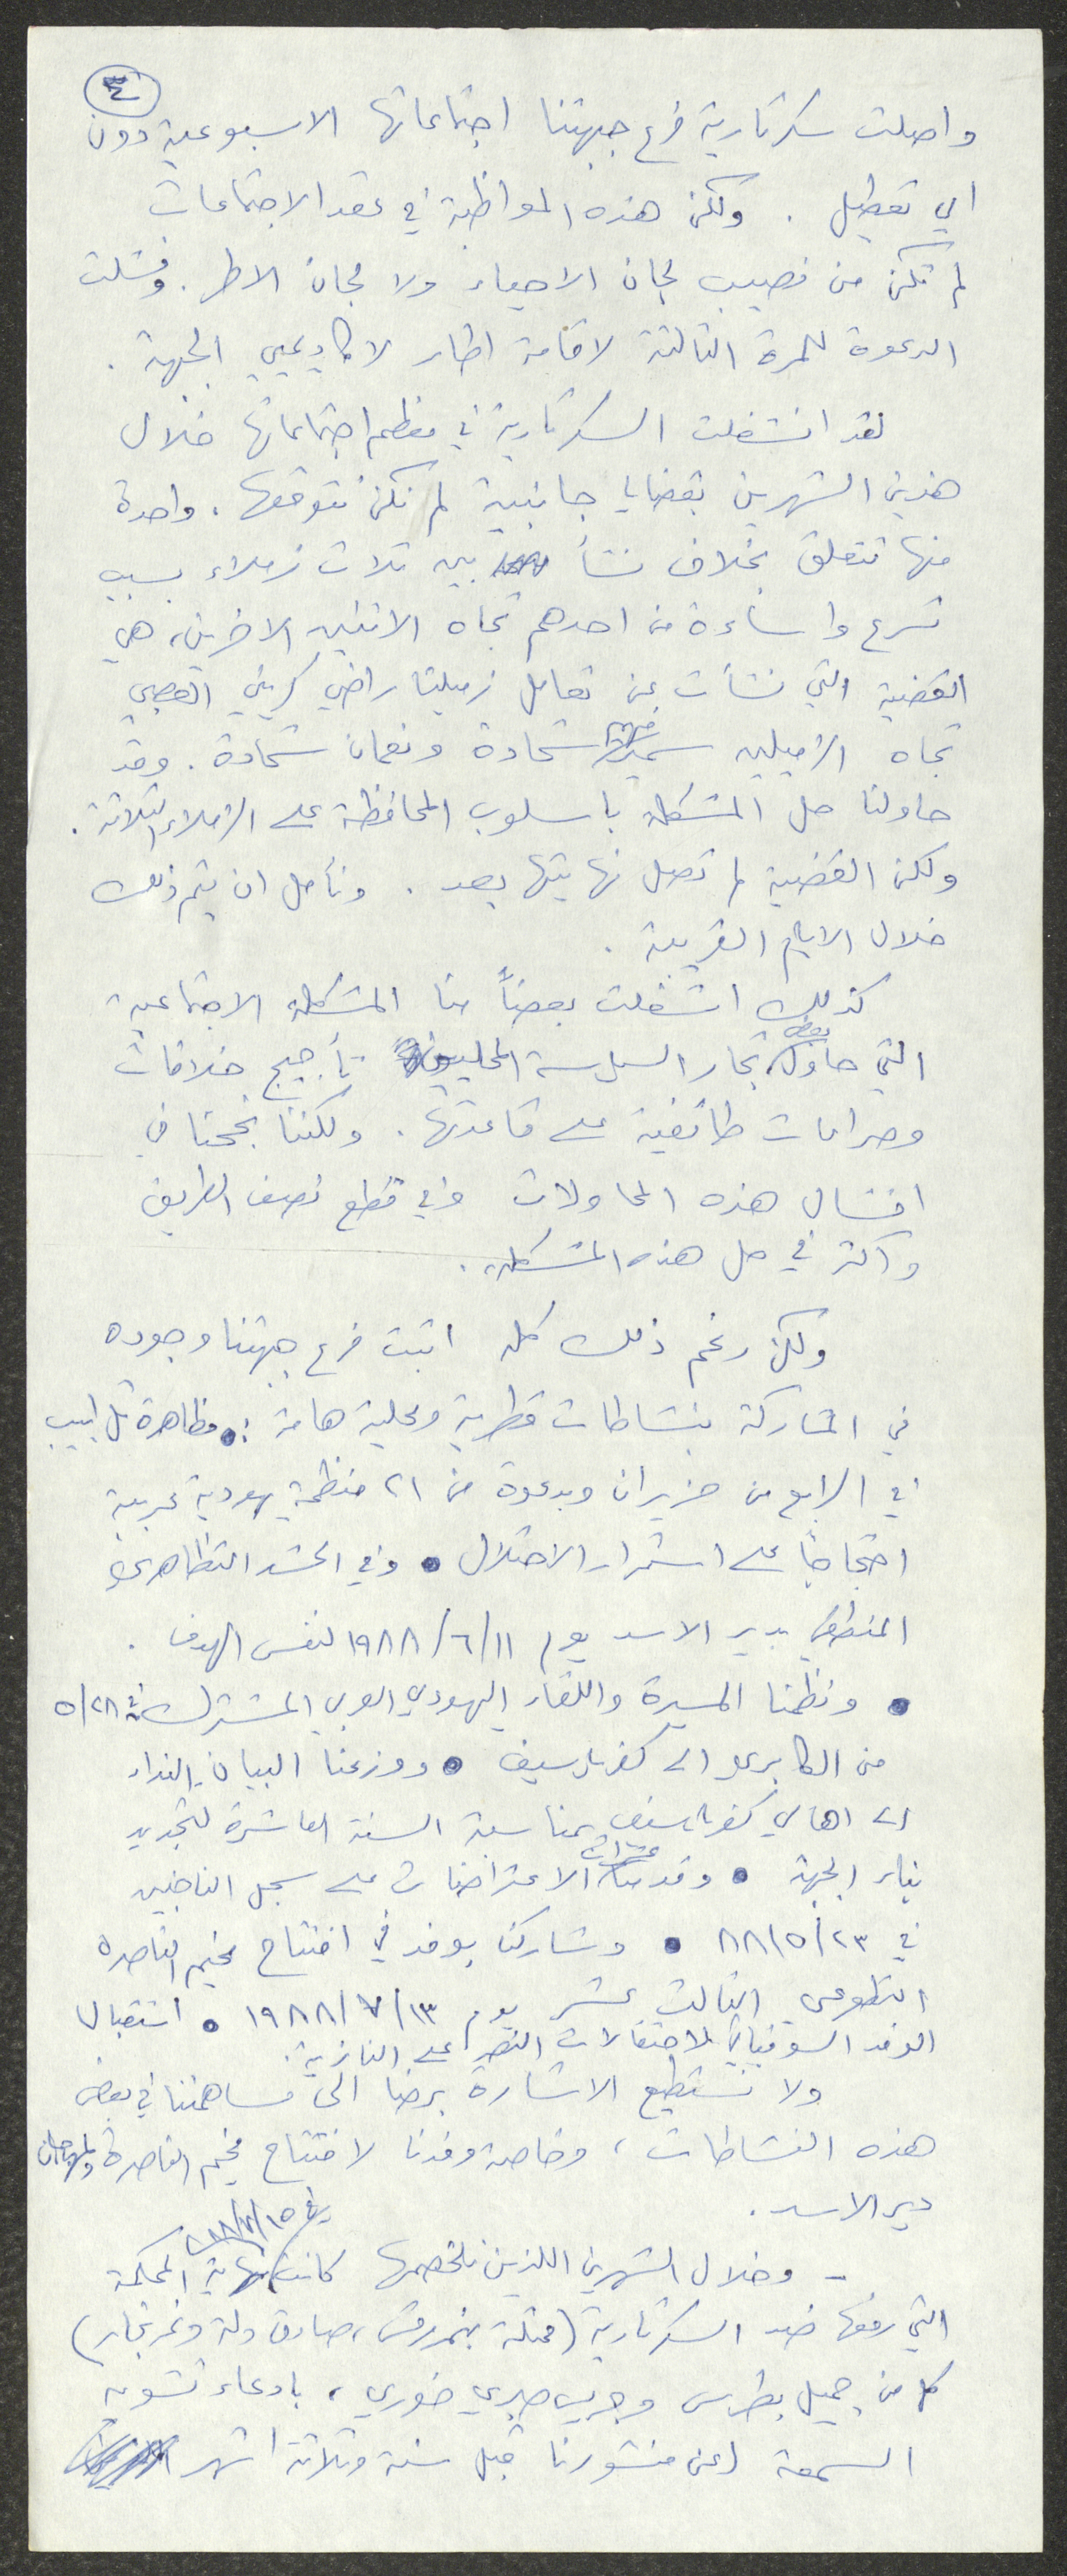 ٣٤
واصلت سكرتارية فرع جبهتنا اجتماعاتها الاسبوعية دون
اي تعطيل . ولكن هذه المواظبة في عقد الاجتماعات
لم تكن من نصيب لجان الاحياء ولا لجان الاطر . وفشلت
الدعوة للمرة الثالثة لاقامة اطار لاكاديميي الجبهة .
لقد انشغلت السكرتارية في معظم اجتماعاتها خلال
هذين الشهرين بقضايا جانبية لم نكن نتوقعها . واحدة
منها تتعلق بخلاف نشأ بين ثلاث زملاء بسبب
تسرع واساءة من احدهم تجاه الاثنين الاخرين، هي
القضية التي نشأت عن تعامل زميلنا راضي كريني العصبي
تجاه الزميلين شحادة ونعمان شحادة . وقد
حاولنا حل المشكلة باسلوب المحافظة على الزملاء الثلاثة .
ولكن القضية لم تصل نهايتها بعد . ونأمل ان يتم ذلك
خلال الايام القريبة .
كذلك اشغلت بعضاً منا المشكلة الاجتماعية
التي حاول بعض تجار السياسة المحليين تأجيج خلافات
وصراعات طائفية على قاعدتها . ولكننا نجحنا في
افشال هذه المحاولات وفي قطع نصف الطريق
واكثر في حل هذه المشكلة .
ولكن رغم ذلك كله اثبت فرع جبهتنا وجوده
في المشاركة بنشاطات قطرية ومحلية هامة : • مظاهرة تل ابيب
في الرابع من حزيران وبدعوة من ٢١ منظمة يهودية عربية
احتجاجاً على استمرار الاحتلال • وفي الحشد التظاهري
المنطقي بدير الاسد يوم ١١/٦/١٩٨٨ لنفس الهدف .
• ونظمنا المسيرة واللقاء اليهودي العربي المشترك في ٢٨/٥
من الكابري الى كفرياسيف • ووزعنا البيان النداء
الى اهالي كفرياسيف بمناسبة السنة العاشرة لتجديد
بناء الجبهة • وقدمنا عشرات الاعتراضات على سجل الناخبين
في ٢٣/٥/٨٨ • وشاركنا بوفد في افتتاح مخيم الناصرة
التطوعي الثالث عشر يوم ١٣/٧/١٩٨٨ • استقبال
الوفد السوفياتي لاحتفالات النصر على النازية .
ولا نستطيع الاشارة برضا الى مساهمتنا في بعض
هذه النشاطات، وخاصة وفدنا لافتتاح مخيم الناصرة
دير الاسد .
- وخلال الشهرين اللذين نلخصهما كانت نهاية المحكمة
التي رفعها ضد السكرتارية (ممثلة بنمر مرقس، صادق دلة ونمر نجار)
كل من جميل بطرس وجريس صبري خوري، بادعاء تشويه
السمعة (عن منشورنا قبل سنة وثلاثة اشهر